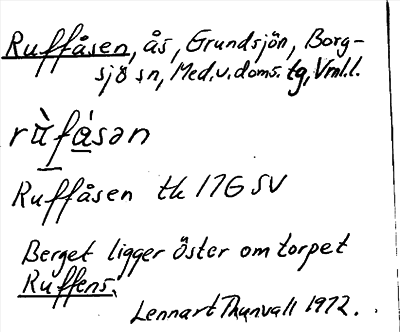 Ruffåsen, ås, Grundsjön, Borg-
sjö sn, Med.v.doms.tg, Vnl.l.
rùfásən
Ruffåsen tk 17G SV
Berget ligger öster om torpet
Ruffens.
Lennart Thunvall 1972.